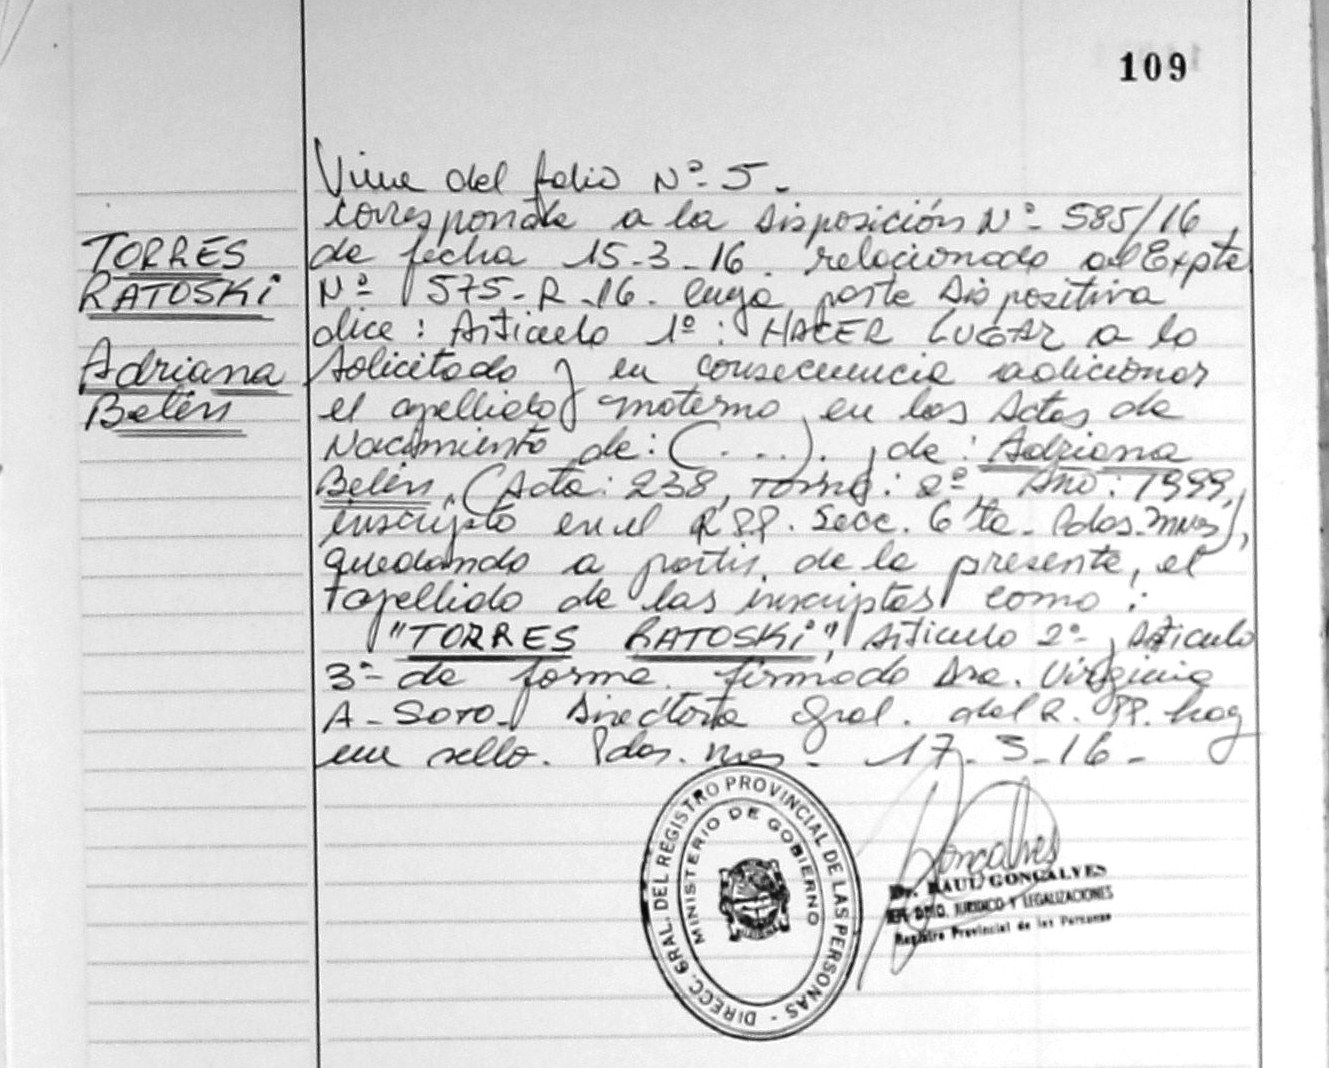 109
Viene del folio Nº 5.
corresponde a la disposición Nº 585/16
TORRES
RATOSKi
Adriana
Belén
de fecha 15-3-16. relacionado al Expte
Nº 575-R-16. cuya parte dispositiva
dice: Artículo 1º: HACER LUGAR a lo
solicitado y en consecuencia adicionar
el apellido materno, en las Actas de
Nacimiento de: (...). , de: Adriana
Belén, (Acta: 238, Tomo: 2º, Año: 1999,
inscripta en el R.PP. Secc. 6ta. Pdas. Mnes),
quedando a partir de la presente, el
apellido de las inscriptas como:
"TORRES RATOSKi", Artículo 2º, Artículo
3º de forma. firmado Dra. Virginia
A. Soto. Directora Gral. del R.PP. hay
un sello. Pdas. Mnes. 17-3-16-
DIRECC. GRAL. DEL REGISTRO PROVINCIAL DE LAS PERSONAS -
MINISTERIO DE GOBIERNO
Goncalves
Dr. RAUL GONCALVES
JEFE DPTO. JURIDICO Y LEGALIZACIONES
Registro Provincial de las Personas